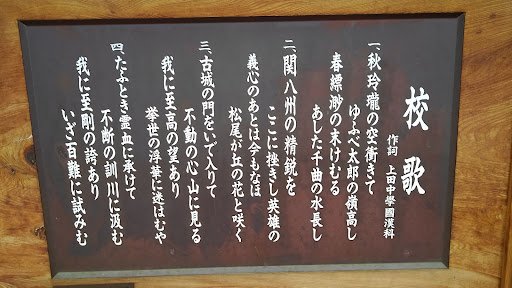 校歌
作詞 上田中學國漢科
一、秋玲瓏の空衝きて
ゆふべ太郎の嶺高し
春縹渺の末けむる
あした千曲の水長し
二、関八州の精鋭を
ここに挫きし英雄の
義心のあとは今もなほ
松尾が丘の花と咲く
三、古城の門をいで入りて
不動の心山に見る
我に至高の望あり
挙世の浮華に迷はむや
四、たふとき霊血に承けて
不断の訓川に汲む
我に至剛の誇あり
いざ百難に試みむ